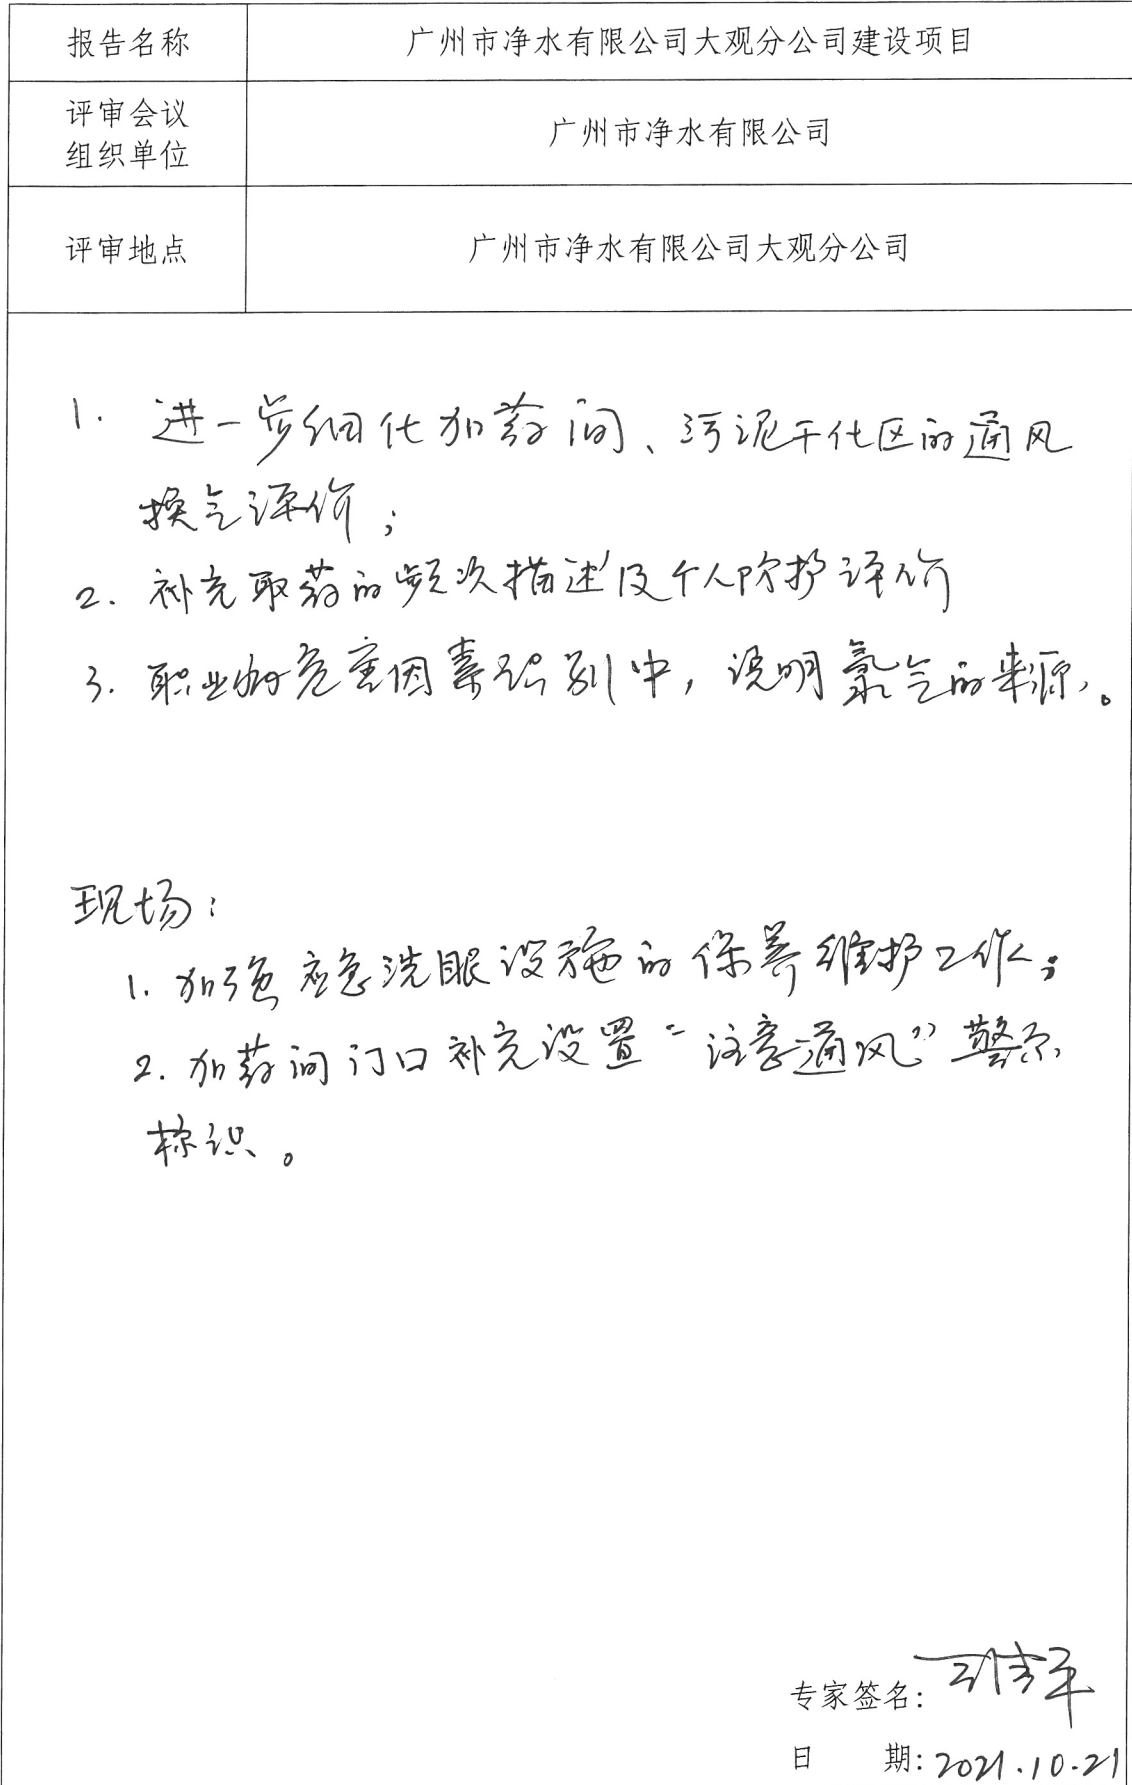 报告名称 广州市净水有限公司大观分公司建设项目
评审会议
组织单位 广州市净水有限公司
评审地点 广州市净水有限公司大观分公司
1. 进一步细化加药间、污泥干化区的通风
换气评价；
2. 补充取药的频次描述及个人防护评价
3. 职业病危害因素识别中，说明氯气的来源。
现场：
1. 加强应急洗眼设施的保养维护工作；
2. 加药间门口补充设置“注意通风”警示
标识。
专家签名：
日 期：2021.10.21